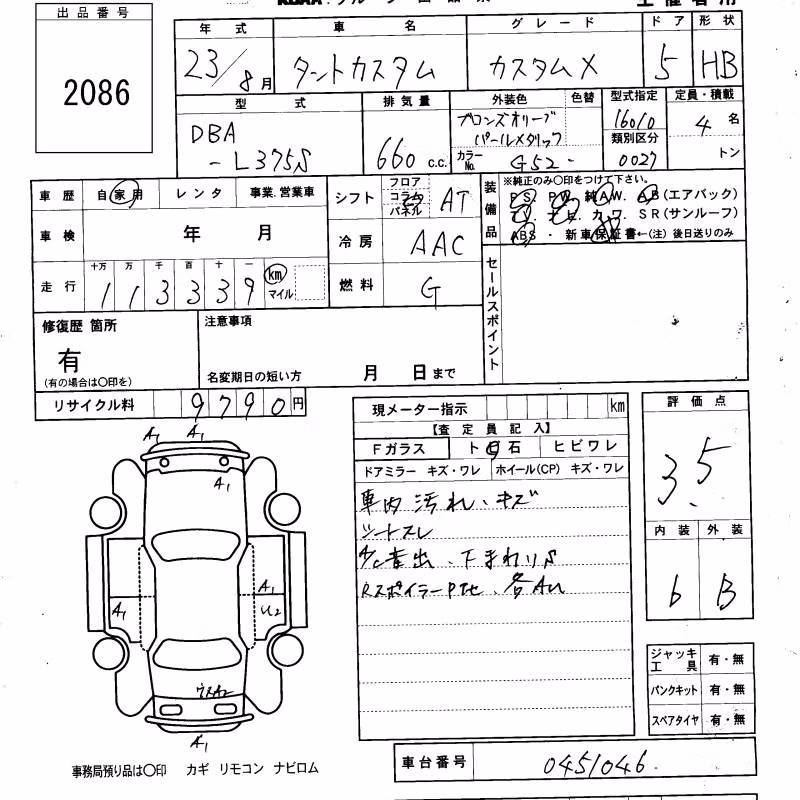 出品番号
2086
年式 車名 グレード ドア 形状
23/8月 タントカスタム カスタムX 5 HB
型式 排気量 外装色 色替 型式指定 定員・積載
DBA-L375S 660 c.c. ブロンズオリーブパールメタリック 16010 4名
カラーNo. G52 類別区分 0027 トン
車歴 自家用 レンタ 事業.営業車
車検 年 月
走行 十万 万 千 百 十 一
113339 km マイル
シフト フロア コラム パネル AT
冷房 AAC
燃料 G
装備品 ※純正のみ〇印をつけて下さい。
PS. PW. 純AW. AB(エアバック)
TV. ナビ. カワ. SR(サンルーフ)
ABS ・ 新車保証書←(注)後日送りのみ
セールスポイント
修復歴 箇所
有
(有の場合は〇印を)
注意事項
名変期日の短い方 月 日まで
リサイクル料 9790円
現メーター指示 km
【査定員記入】
Fガラス ト 石 ヒビワレ
ドアミラー キズ・ワレ ホイール(CP) キズ・ワレ
車内汚れ・キズ
シートスレ
下まわりS
RスポイラーP 各AU
評価点
3.5
内装 外装
6 B
A1 A1
A1
A1
A1 U2
A2
A1
ジャッキ工具 有・無
パンクキット 有・無
スペアタイヤ 有・無
事務局預り品は〇印 カギ リモコン ナビロム
車台番号 0451046